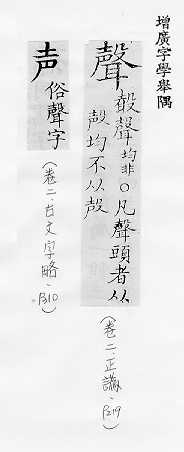 增廣字學舉隅
聲
聲均非○凡聲頭者从
均不从
(卷二、正譌、
声 俗聲字
(卷二、古文字略、